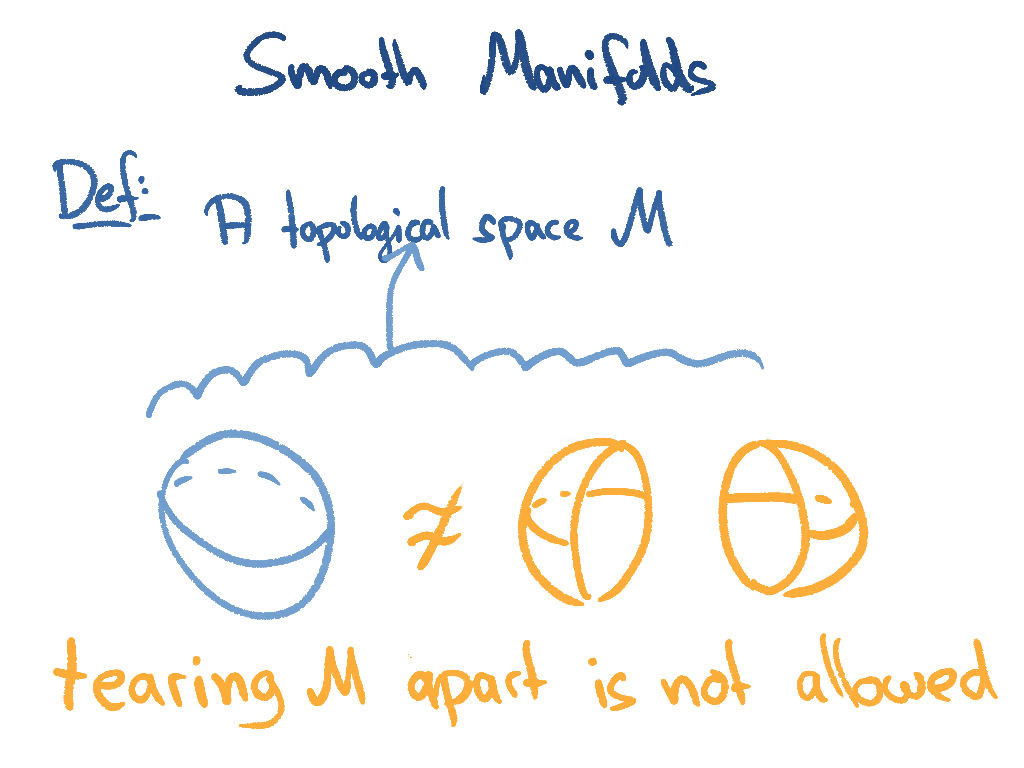 Smooth Manifolds
Def:
A topological space M
≉
tearing M apart is not allowed